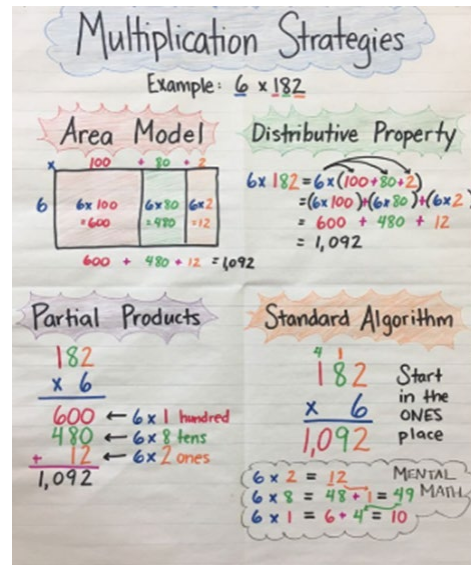 Multiplication Strategies
Example: 6 x 182
Area Model
x 100 + 80 + 2
6 6x100 6x80 6x2
=600 =480 =12
600 + 480 + 12 = 1,092
Distributive Property
6x182 = 6x(100+80+2)
=(6x100)+(6x80)+(6x2
= 600 + 480 + 12
= 1,092
Partial Products
182
x 6
600 ← 6x1 hundred
480 ← 6x8 tens
+ 12 ← 6x2 ones
1,092
Standard Algorithm
4 1
182
x 6
1,092
Start
in the
ONES
place
6 x 2 = 12
6 x 8 = 48 + 1 = 49
6 x 1 = 6 + 4 = 10
MENTAL
MATH